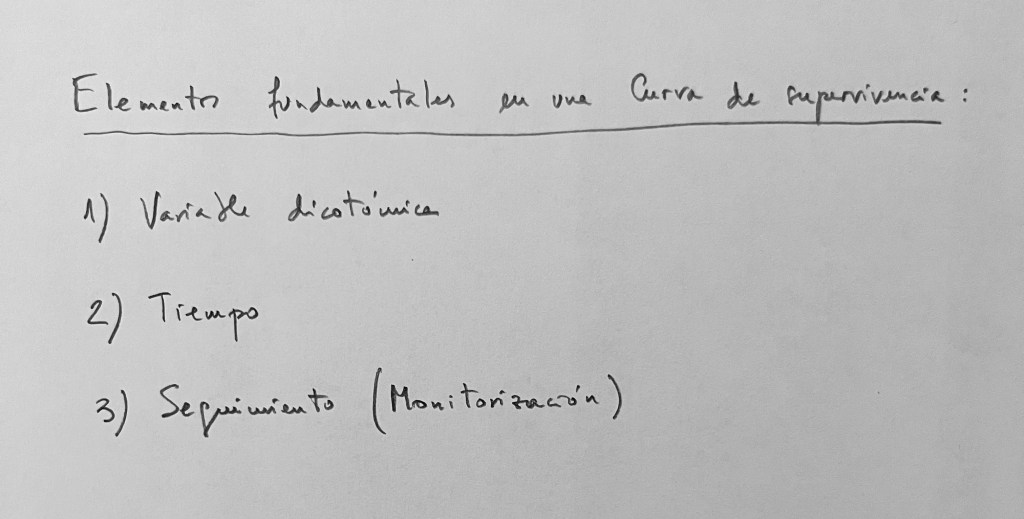 Elementos fundamentales en una Curva de supervivencia :
1) Variable dicotómica
2) Tiempo
3) Seguimiento (Monitorización)